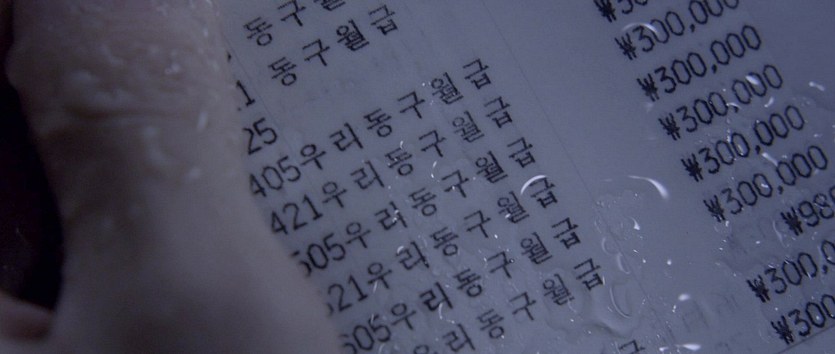 동 구
동 구 월 급
1
25
405우 리 동 구 월 급 ₩30
421우 리 동 구 월 급 ₩300,000
505우 리 동 구 월 급 ₩300,000
521우 리 동 구 월 급 ₩300,000
605우 리 동 구 월 급 ₩300,000
리 동 구 월 급 ₩300,000
₩98
₩300,0
₩300